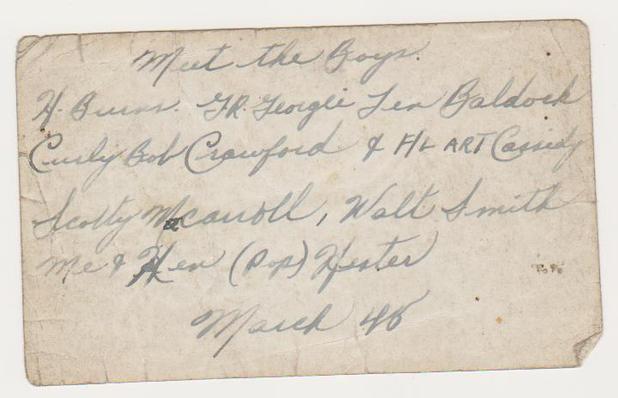 Meet the Boys.
H. Burns. GR. Georgie Len Baldock
Curly Bob Crawford & F/L ART Cassidy
Scotty Mcarroll, Walt Smith
Me & Hen (Pop) Hester
March 45